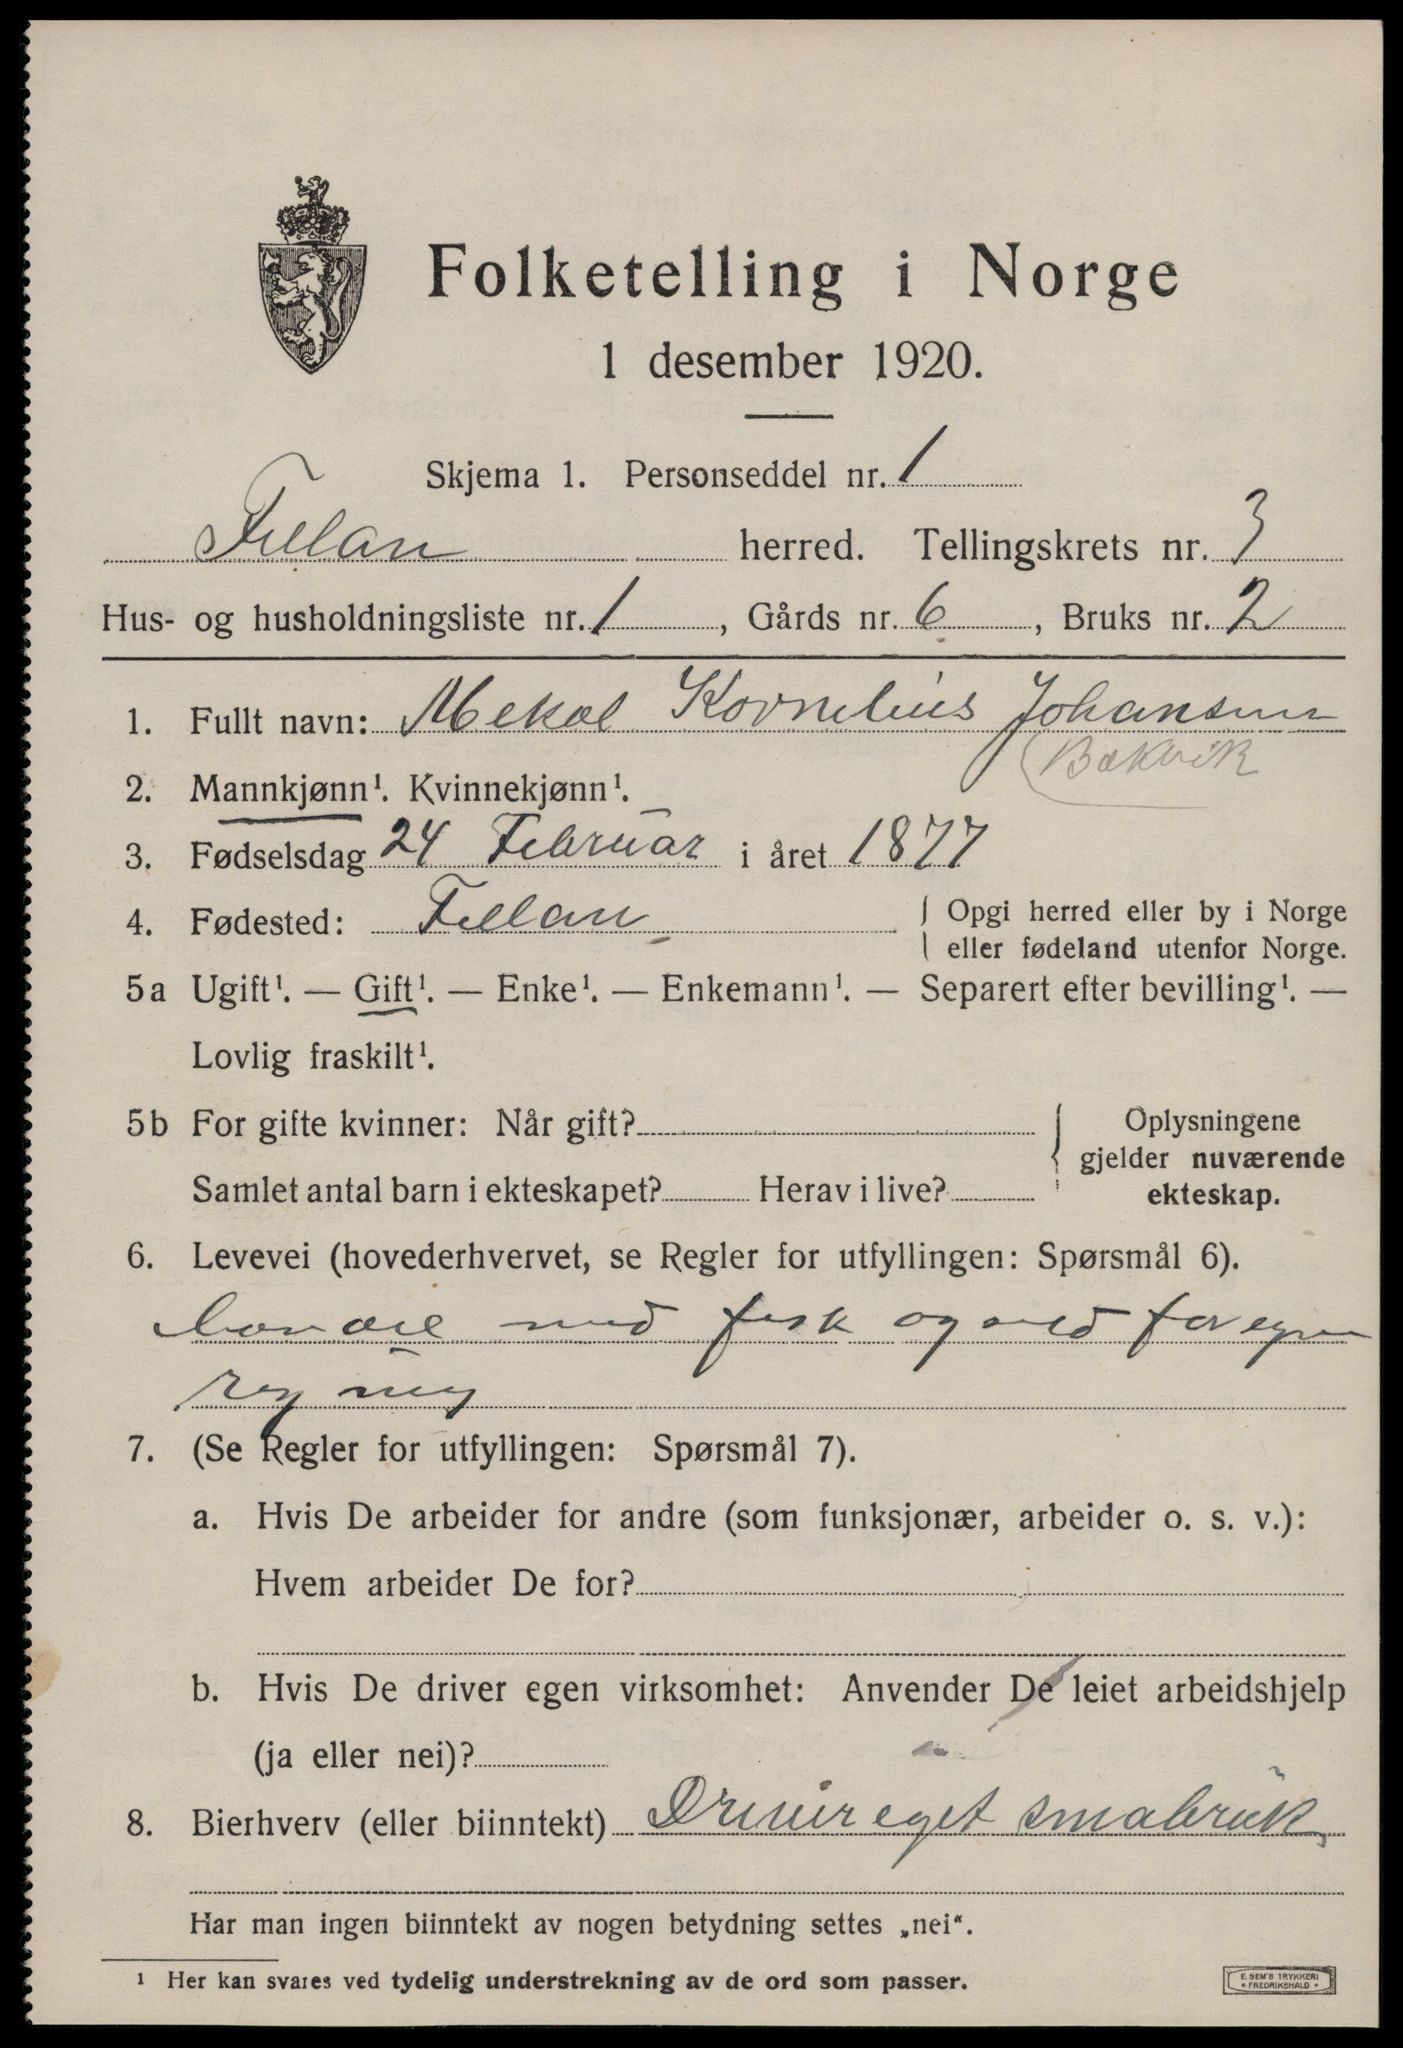 Folketelling i Norge
1 desember 1920.
Skjema 1. Personseddel nr. 1
Fillan herred. Tellingskrets nr. 3
Hus- og husholdningsliste nr. 1, Gårds nr. 6, Bruks nr. 2
1. Fullt navn: Mekal Kornelius Johansen
Bækvik
2. Mannkjønn¹. Kvinnekjønn¹.
3. Fødselsdag 24 Februar i året 1877
4. Fødested: Fillan
Opgi herred eller by i Norge
eller fødeland utenfor Norge.
5a Ugift¹. — Gift¹. — Enke¹. — Enkemann¹. — Separert efter bevilling¹. —
Lovlig fraskilt¹.
5b For gifte kvinner: Når gift?
Samlet antal barn i ekteskapet? Herav i live?
Oplysningene
gjelder nuværende
ekteskap.
6. Levevei (hovederhvervet, se Regler for utfyllingen: Spørsmål 6).
med fisk og sild for egen
regning
7. (Se Regler for utfyllingen: Spørsmål 7).
a. Hvis De arbeider for andre (som funksjonær, arbeider o. s. v.):
Hvem arbeider De for?
b. Hvis De driver egen virksomhet: Anvender De leiet arbeidshjelp
(ja eller nei)?
8. Bierhverv (eller biinntekt) Driver eget smabruk
Har man ingen biinntekt av nogen betydning settes „nei“.
¹ Her kan svares ved tydelig understrekning av de ord som passer.
E. SEM'S TRYKKERI
* FREDRIKSHALD *